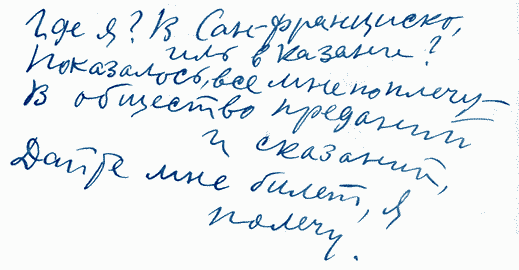 Где я? В Сан-Франциско,
иль в Казани?
Показалось, все мне по плечу –
В общество преданий
и сказаний,
Дайте мне билет, я
полечу.